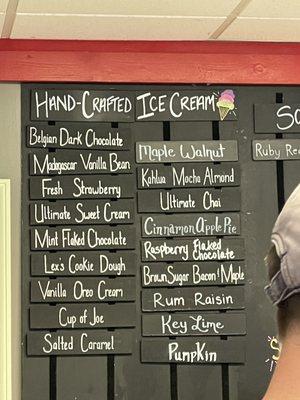 HAND-CRAFTED ICE CREAM
Belgian Dark Chocolate
Madagascar Vanilla Bean
Fresh Strawberry
Ultimate Sweet Cream
Mint Flaked Chocolate
Lex's Cookie Dough
Vanilla Oreo Cream
Cup of Joe
Salted Caramel
Maple Walnut
Kahlua Mocha Almond
Ultimate Chai
Cinnamon Apple Pie
Raspberry Flaked
Chocolate
Brown Sugar Bacon & Maple
Rum Raisin
Key Lime
Pumpkin
Ruby Re